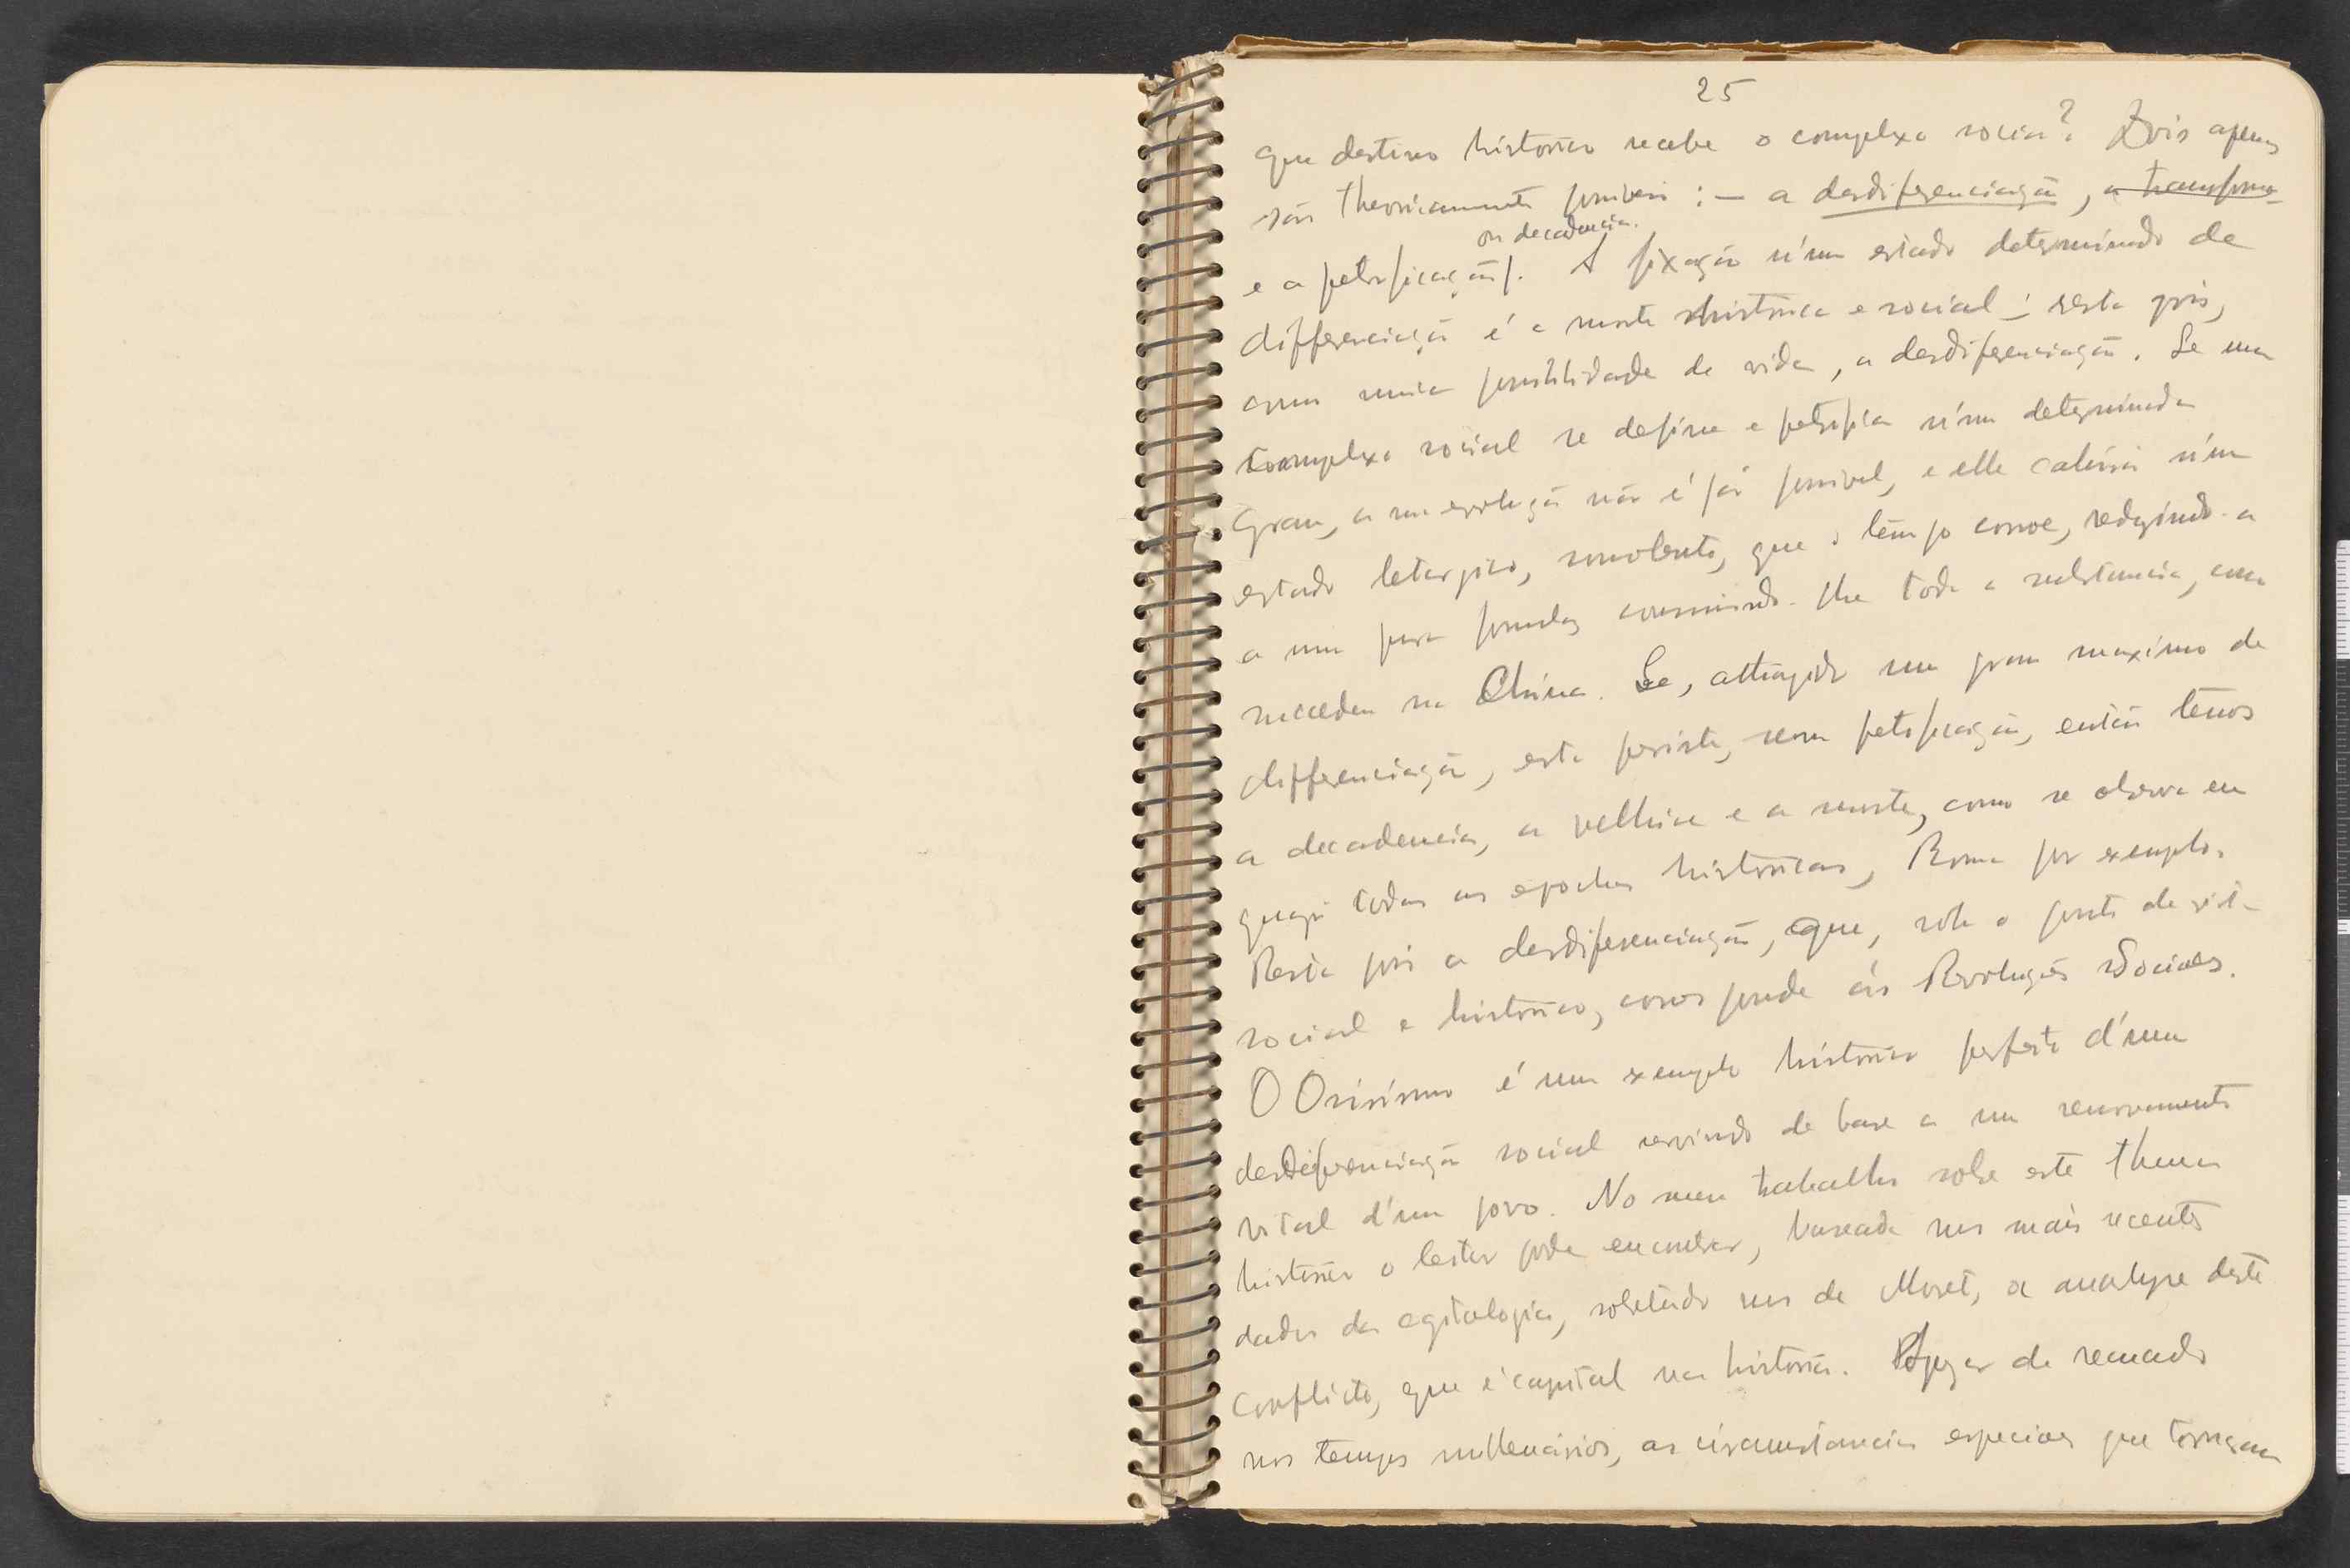 25
que destino historico recebe o complexo social? Dois apenas
são theoricamente possiveis : — a desdiferenciação, a transforma-
ou decadencia.
e a petrificação. A fixação n'um estado determinado de
differenciação é a morte historica e social; resta pois,
como unica possibilidade de vida, a desdiferenciação. Se um
complexo social se define e petrifica n'um determinado
grau, a sua evolução não é já possivel, e elle cahirá n'um
estado letargico, somolento, que o tempo corroe, reduzindo-a
a uma pura formula, consumindo-lhe toda a substancia, como
succedeu na China. Se, attingido um grau maximo de
differenciação, esta persiste, sem petrificação, então temos
a decadencia, a velhice e a morte, como se observa em
quasi todas as epochas historicas, Roma por exemplo.
Resta pois a desdiferenciação, que, sob o ponto de vista
social e historico, corresponde ás Revoluções Sociaes.
O Osirismo é um exemplo historico perfeito d'uma
desdiferenciação social servindo de base a um renovamento
vital d'um povo. No meu trabalho sobre este thema
historico o leitor pode encontrar, baseada nos mais recentes
dados da egitologia, sobretudo nos de Moret, a analyse deste
conflicto, que é capital na historia. Apezar de recuado
nos tempos millenarios, as circumstancias especiaes que tornaram